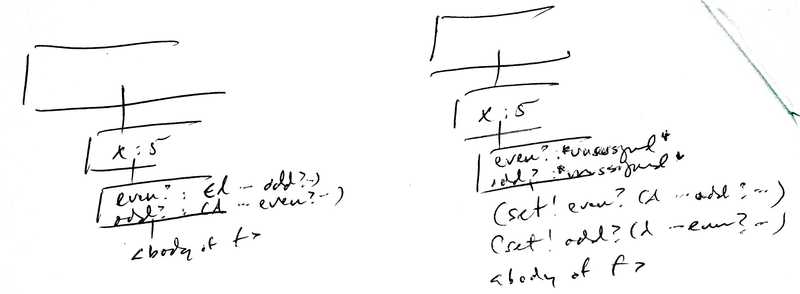 x : 5
even? : (λ … odd? …)
odd? : (λ … even? …)
<body of f>
x : 5
even? : *unassigned*
odd? : *unassigned*
(set! even? (λ … odd? …)
(set! odd? (λ … even? …)
<body of f>